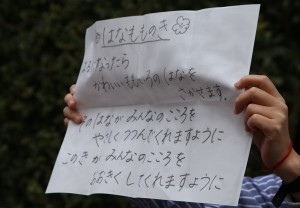 はなもものき
なったら
かわいいももいろのはなを
さかせます。
このはながみんなのこころを
やさしくつつんでくれますように
このきがみんなのこころを
おおきくしてくれますように